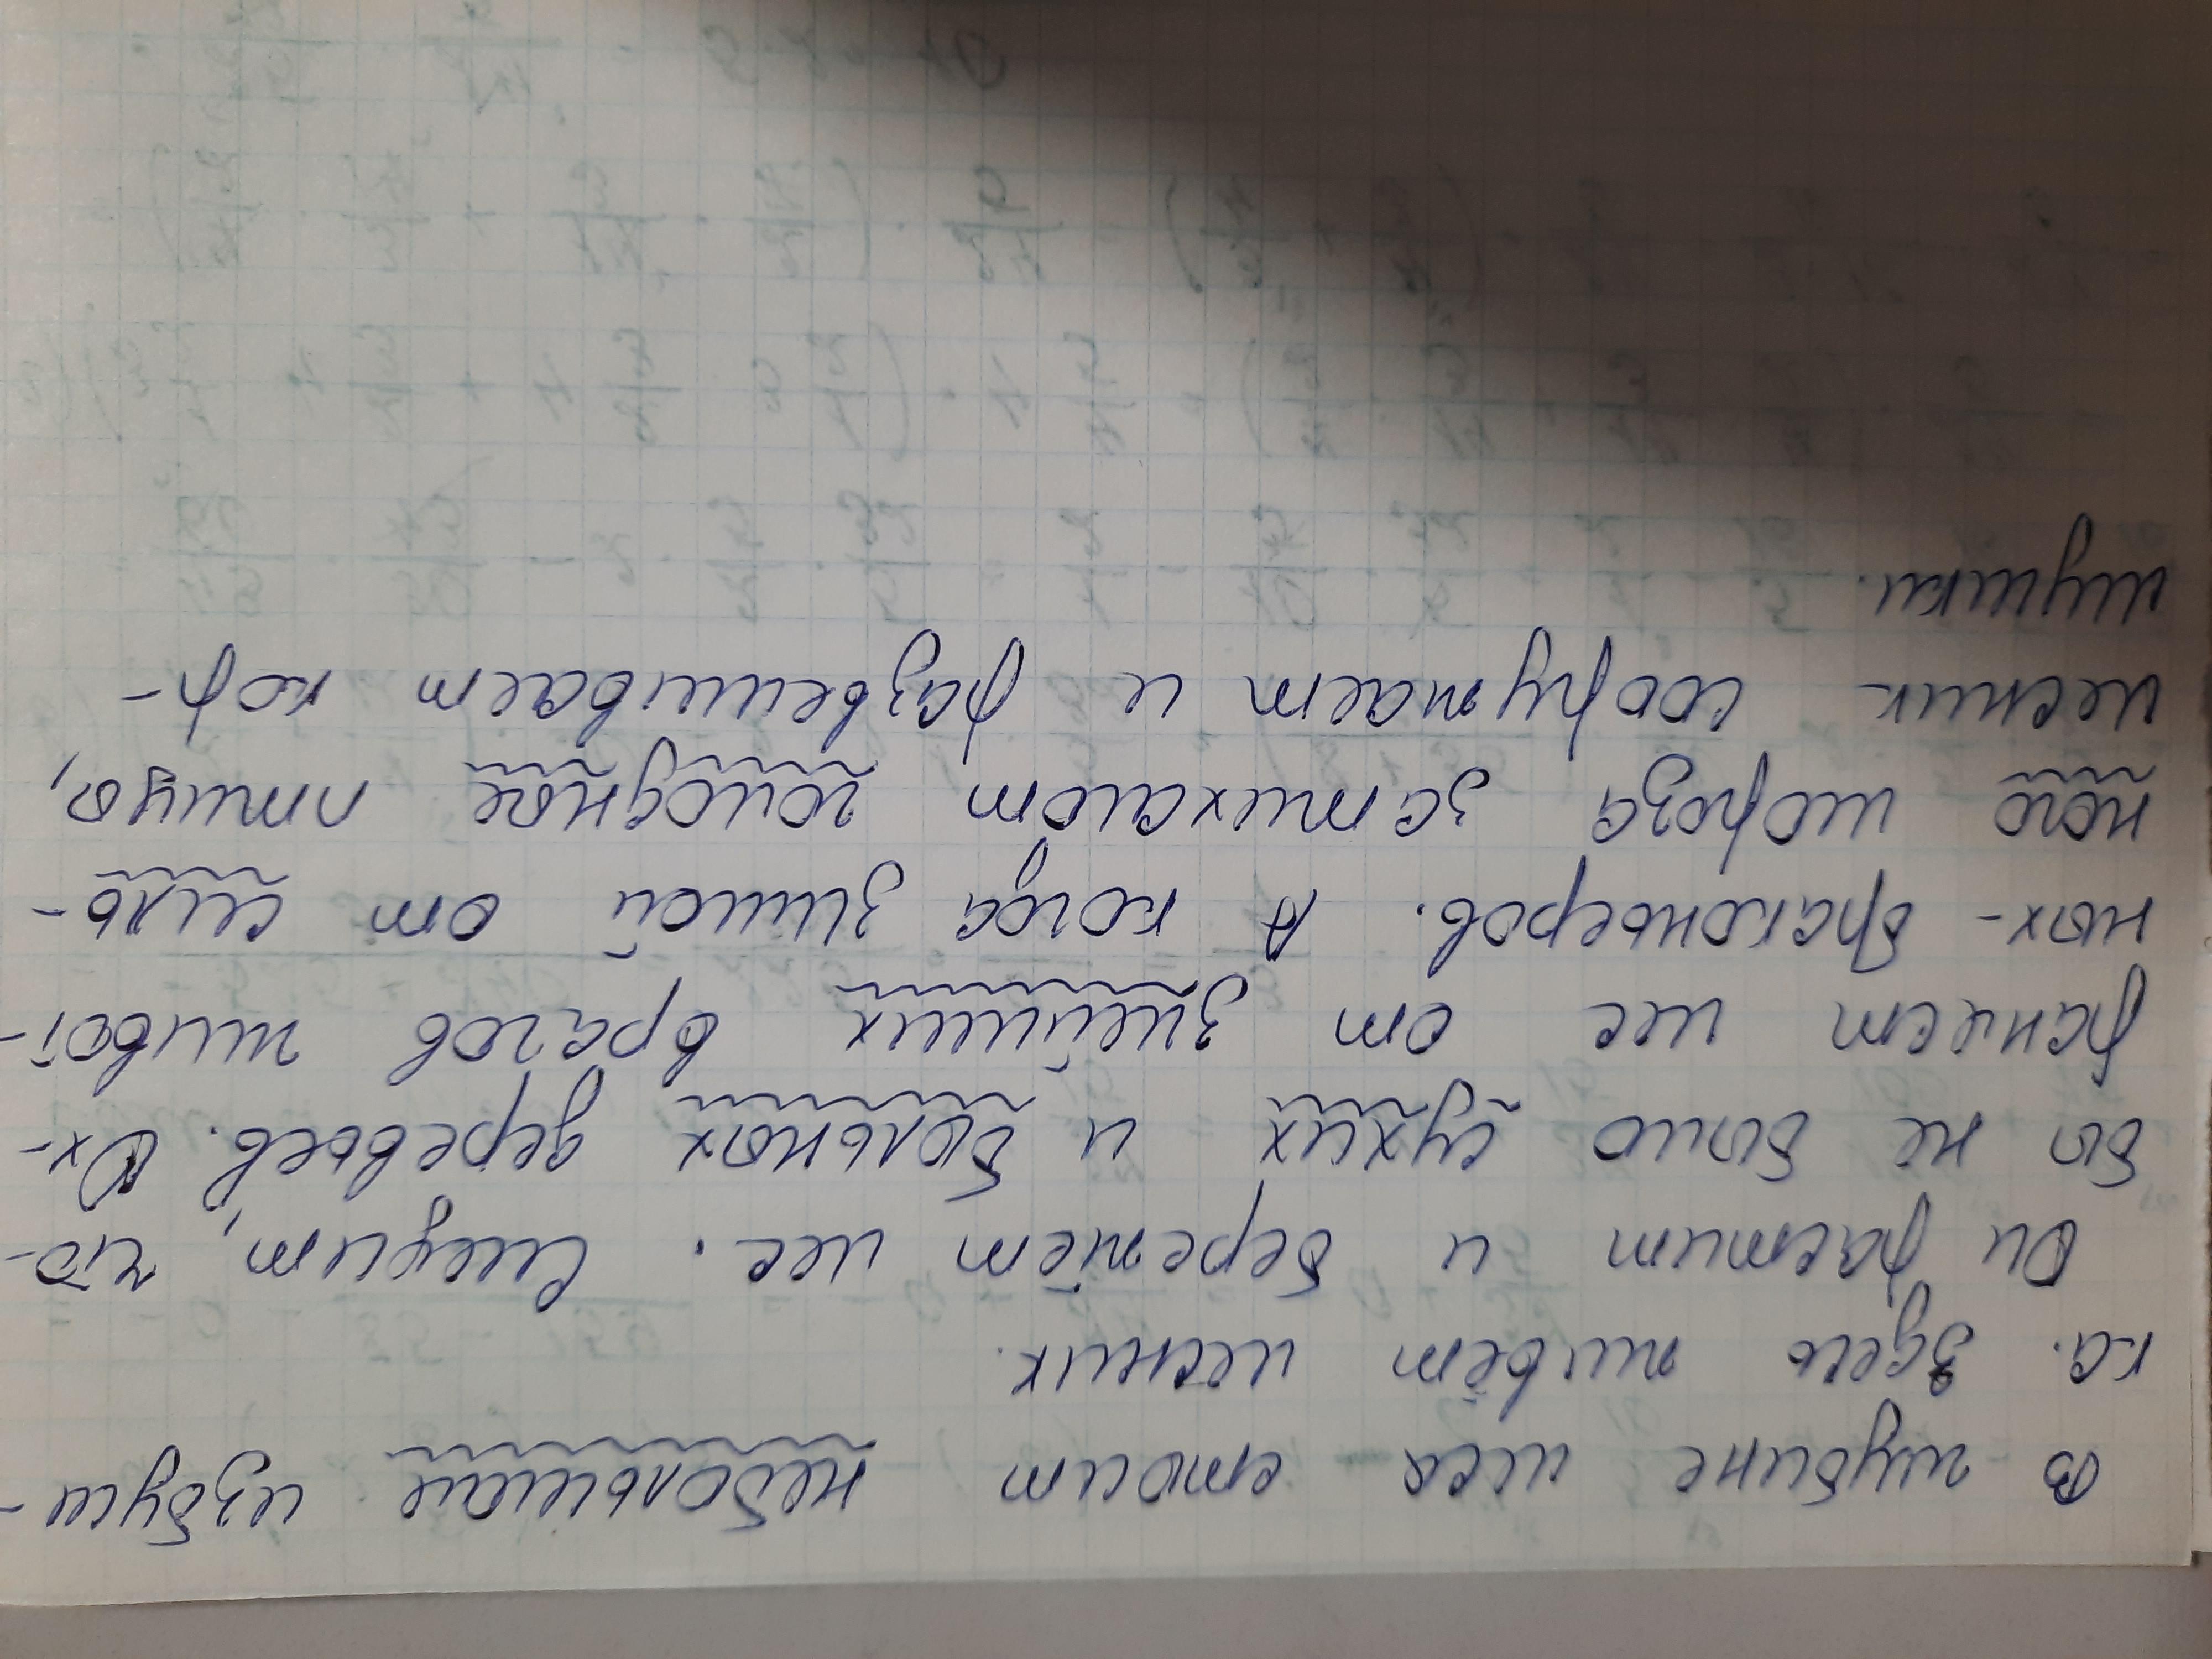 В глубине леса стоит небольшая избуш-
ка. Здесь живёт лесник.
Он растит и бережёт лес. Следит, что-
бы не было сухих и больных деревьев. Ох-
раняет лес от злейших врагов живот-
ных- браконьеров. А когда зимой от силь-
ного мороза затихают голодные птицы,
лесник сооружает и развешивает кор-
мушки.